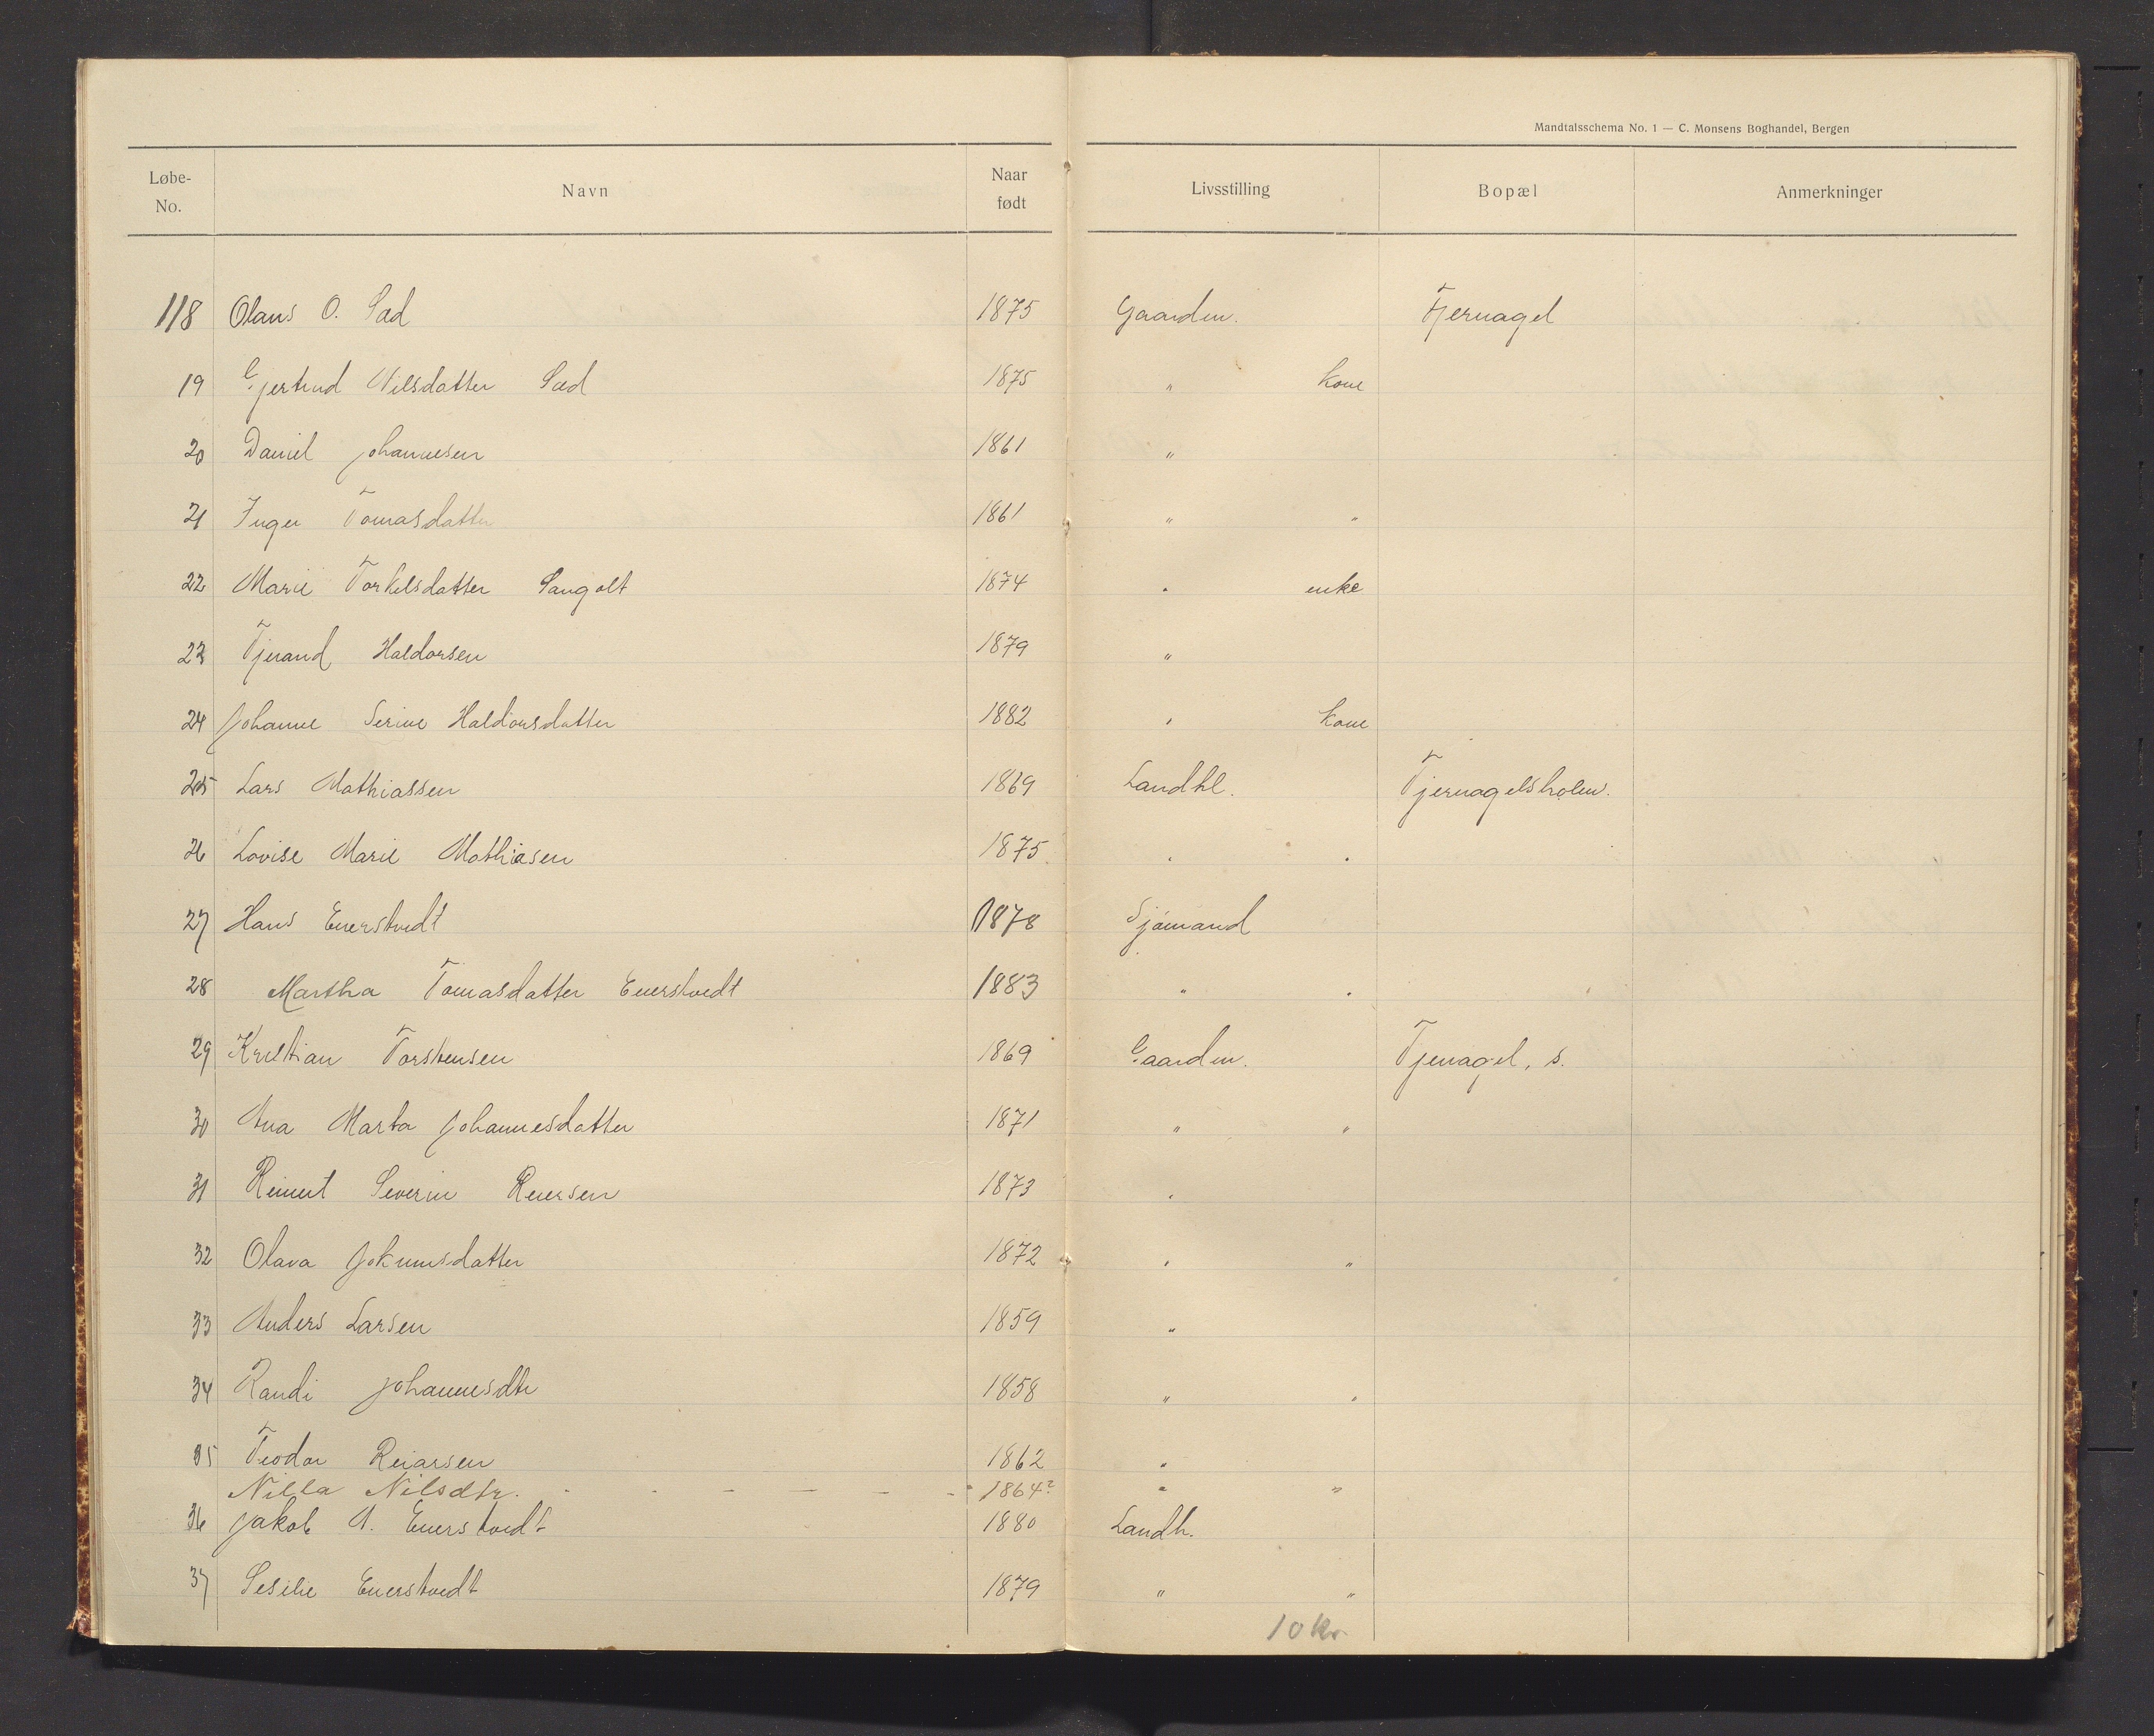 Mandtalsschema No. 1 — C. Monsens Boghandel, Bergen
Løbe-No. Navn Naar født Livsstilling Bopæl Anmerkninger
118 Olaus O. Sæd 1875 Gaardm. Tjernagel
19 Gjertrud Nilsdatter Sæd 1875 " kone
20 Daniel Johannesen 1861 "
21 Inger Tomasdatter 1861 " "
22 Marie Torkelsdatter Langolt 1874 " enke
23 Tjerand Haldorsen 1879 "
24 Johanne Serine Haldorsdatter 1882 " kone
25 Lars Mathiassen 1869 Landhl. Tjernagelsholm.
26 Lovise Marie Mathiasen 1875 " "
27 Hans Enerstvedt 1878 Sjømand
28 Martha Tomasdatter Enerstvedt 1883 " "
29 Kristian Torstensen 1869 Gaardm. Tjernagel, s.
30 Ana Marta Johannesdatter 1871 " "
31 Reinert Severin Reiersen 1873 "
32 Olava Jokumsdatter 1872 " "
33 Anders Larsen 1859 "
34 Randi Johannesdtr 1858 " "
35 Teodor Reiarsen 1862 "
Nilla Nilsdtr. - - - - - - 1864? " "
36 Jakob A. Enerstvedt 1880 Landh.
37 Sesilie Enerstvedt 1879 " "
10 kr